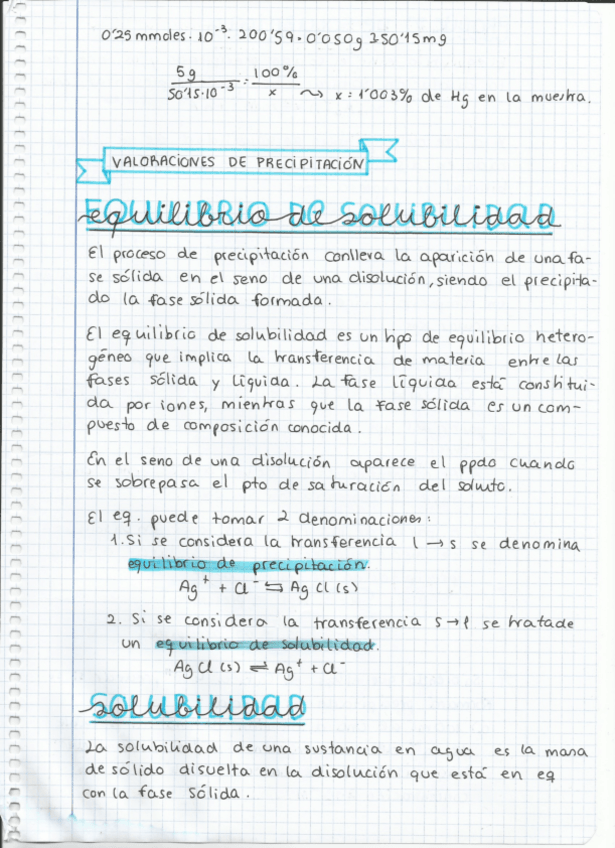 0'25 mmoles · 10⁻³ · 200'59 = 0'050g ≡ 50'15mg
5g / 50'15·10⁻³ = 100% / x ⤳ x = 1'003% de Hg en la muestra.
VALORACIONES DE PRECIPITACIÓN
EQUILIBRIO DE SOLUBILIDAD
equilibrio de solubilidad
El proceso de precipitación conlleva la aparición de una fa-
se sólida en el seno de una disolución, siendo el precipita-
do la fase sólida formada.
El equilibrio de solubilidad es un tipo de equilibrio hetero-
géneo que implica la transferencia de materia entre las
fases sólida y líquida. La fase líquida está constitui-
da por iones, mientras que la fase sólida es un com-
puesto de composición conocida.
En el seno de una disolución aparece el ppdo cuando
se sobrepasa el pto de saturación del soluto.
El eq. puede tomar 2 denominaciones:
1. Si se considera la transferencia l → s se denomina
equilibrio de precipitación.
Ag⁺ + Cl⁻ ⇆ AgCl (s)
2. Si se considera la transferencia s → l se trata de
un equilibrio de solubilidad.
AgCl (s) ⇌ Ag⁺ + Cl⁻
SOLUBILIDAD
solubilidad
La solubilidad de una sustancia en agua es la masa
de sólido disuelta en la disolución que está en eq
con la fase sólida.